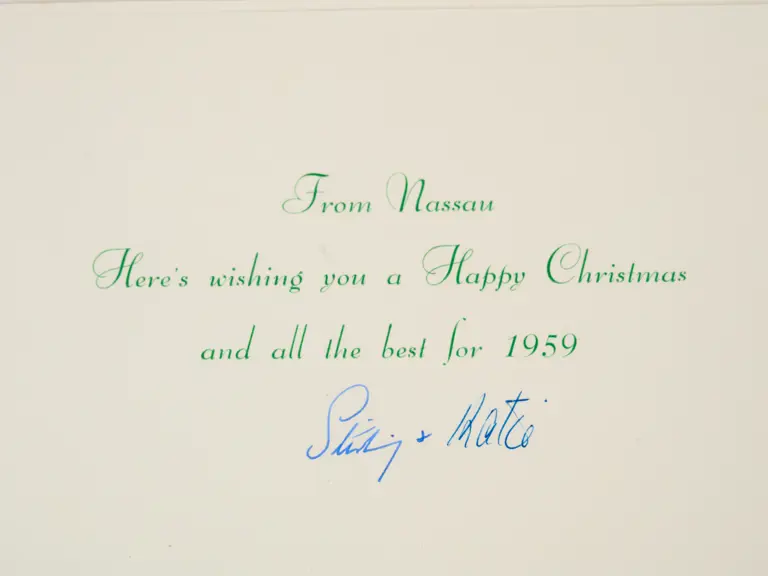 From Nassau
Here's wishing you a Happy Christmas
and all the best for 1959
Stirling + Katie